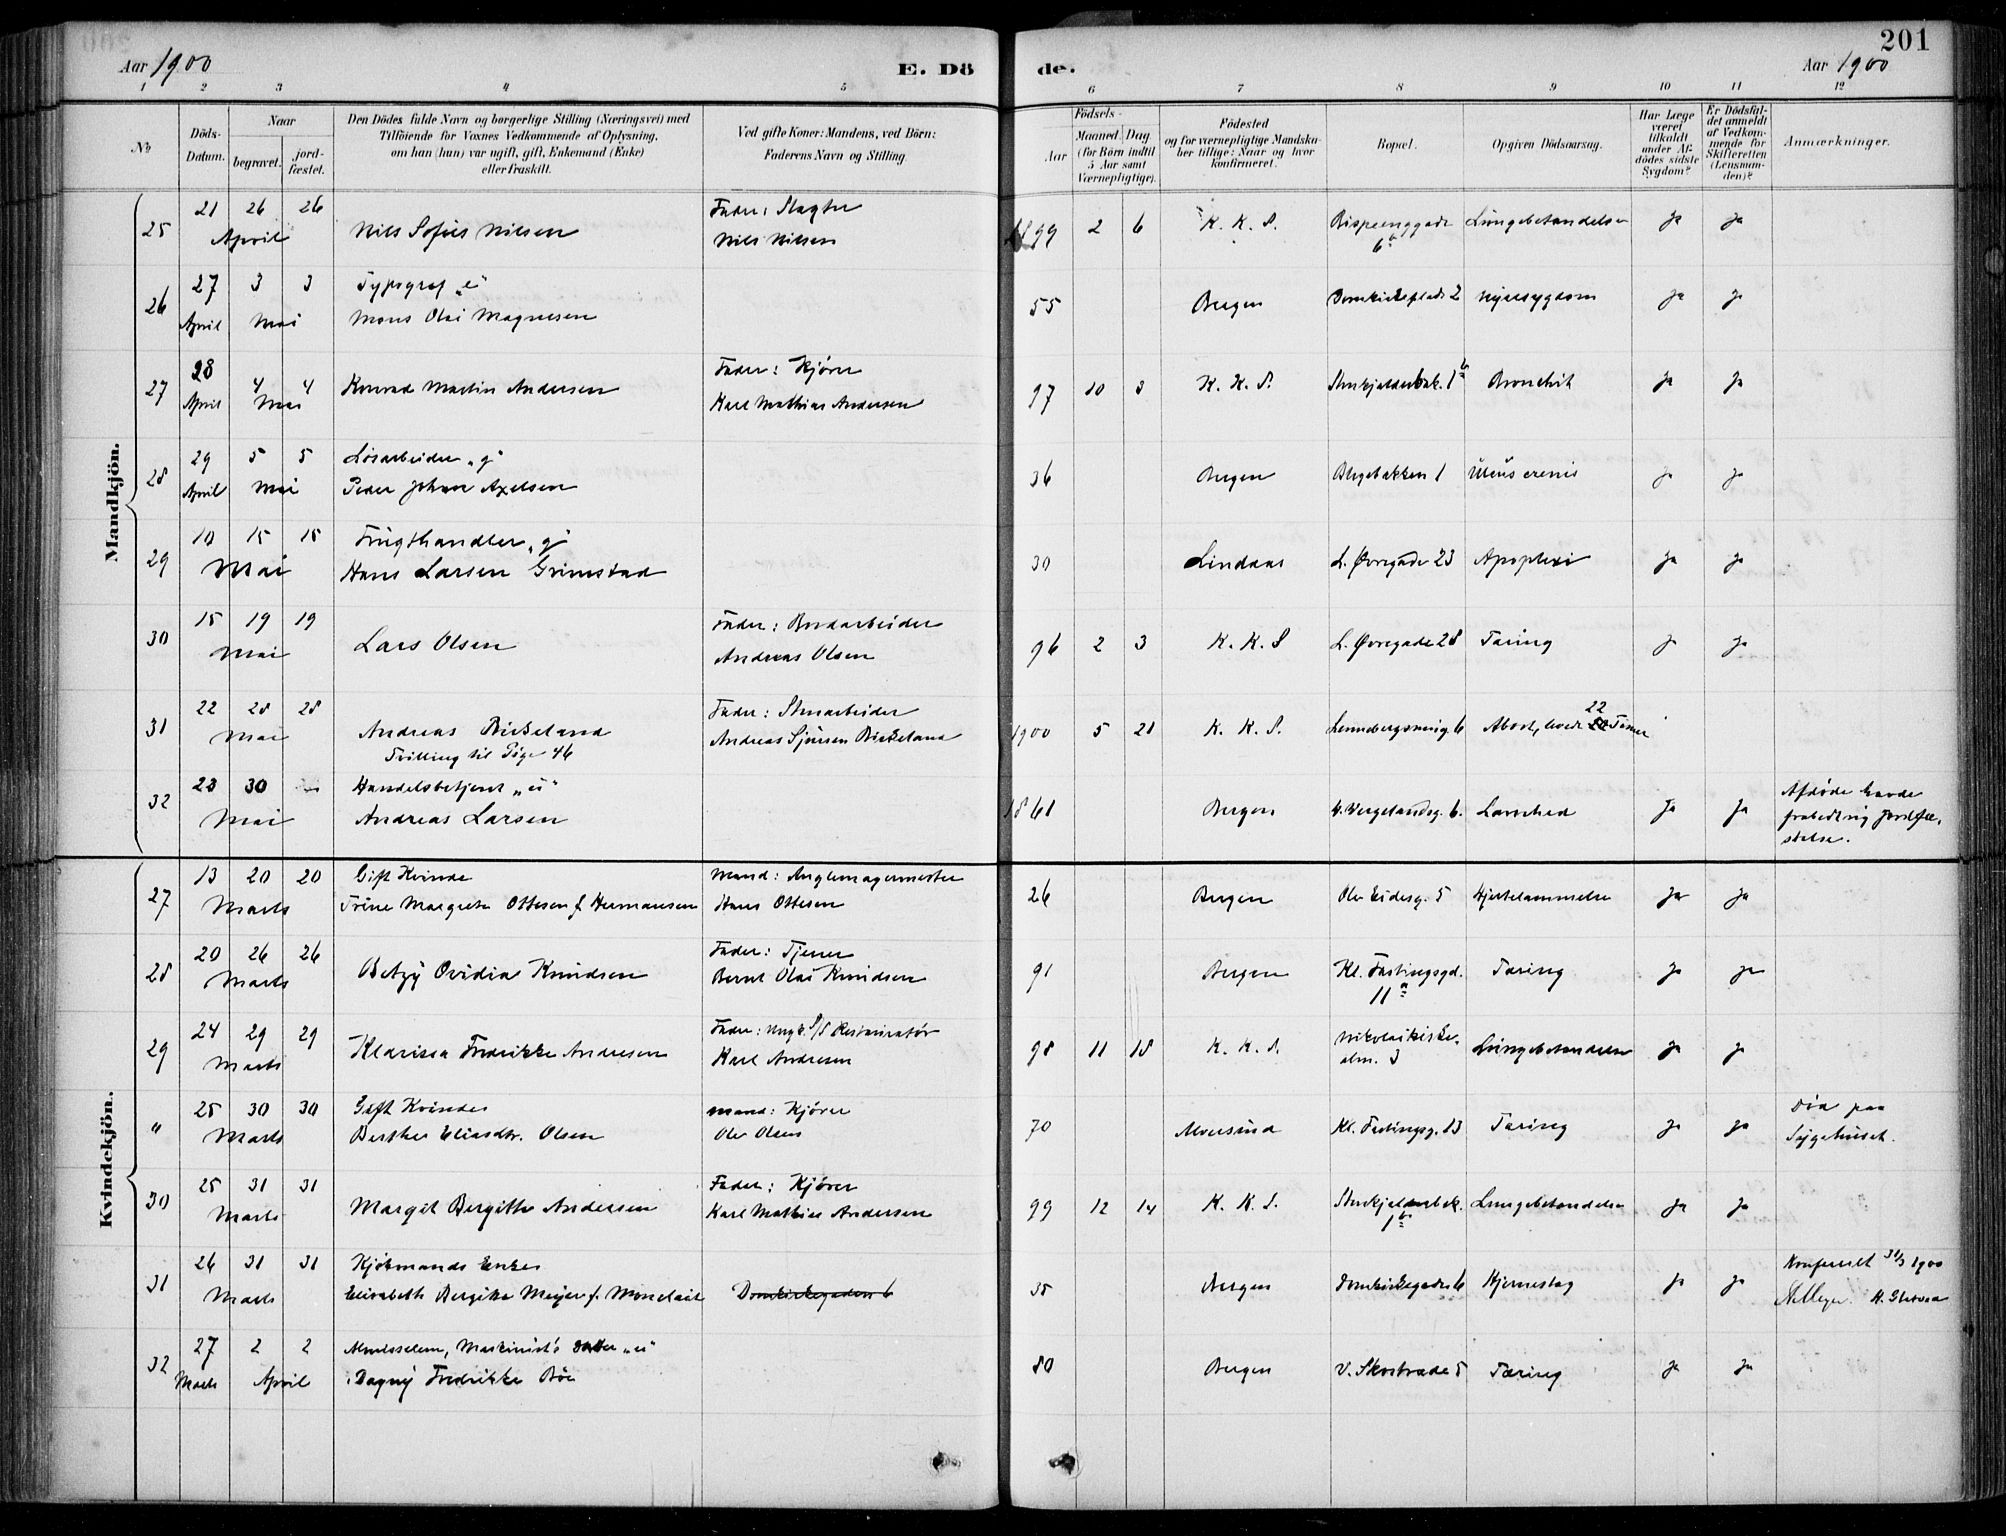 201
Aar 1900
E. Dö
de.
Aar 1900
1 2 3 4 5 6 7 8 9 10 11 12
No
Döds-Datum.
Naar
begravet.
jordfæstet.
Den Dödes fulde Navn og borgerlige Stilling (Næringsvei) med
Tilföiende for Voxnes Vedkommende af Oplysning,
om han (hun) var ugift, gift, Enkemand (Enke)
eller fraskilt.
Ved gifte Koner: Mandens, ved Börn:
Faderens Navn og Stilling.
Födsels-
Aar
Maaned
Dag
(for Börn indtil
5 Aar samt
Værnepligtige).
Födested
og for værnepligtige Mandskaber tillige: Naar og hvor
konfirmeret.
Bopæl.
Opgiven Dödsaarsag.
Har Læge
været
tilkaldt
under Afdödes sidste
Sygdom?
Er Dödsfaldet anmeldt
af Vedkommende for
Skifteretten
(Lensmanden)?
Anmærkninger.
Mandkjön.
25 21 26 26 April Nils Sofus Nilsen Fader: Slagter Nils Nilsen 1899 2 6 K. K. S. Bispeenggade 6a Lungebetændelse Ja Ja
26 27 April 3 3 Mai Typograf „e“ Mons Olai Magnesen 55 Bergen Domkirkeplads 2 Nyresygdom Ja Ja
27 28 April 4 4 Mai Konrad Martin Andersen Fader: Kjører Karl Mathias Andersen 97 10 3 K. K. S. Stenkjelderbak. 1b Bronchit Ja Ja
28 29 April 5 5 Mai Løsarbeider „g“ Peder Johan Axelsen 36 Bergen Blegebakken 1 Ulcus cruris Ja Ja
29 10 15 15 Mai Frugthandler „g“ Hans Larsen Grimstad 30 Lindaas L. Øvregade 23 Apoplexi Ja Ja
30 15 19 19 Mai Lars Olsen Fader: Bordarbeider Andreas Olsen 96 2 3 K. K. S L. Øvregade 28 Tæring Ja Ja
31 22 28 28 Mai Andreas Birkeland Tvilling til Pige 46 Fader: Stenarbeider Andreas Sjursen Birkeland 1900 5 21 K. K. S. 6 Abort, levede 22 Timer
32 23 30 Mai Handelsbetjent „u“ Andreas Larsen 1861 Bergen H. Wergelandsg. 6. Lamhed Ja Ja Afdøde havde frabedt sig Jordfæstelse.
Kvindekjön.
27 13 20 20 Marts Gift Kvinde Trine Margrete Ottesen f. Hermansen Mand: Anglemagermester Hans Ottesen 26 Bergen Ole Eidesg. 5 Hjertelammelse Ja Ja
28 20 26 26 Marts Betzy Ovidia Knudsen Fader: Tjener Bernt Olai Knudsen 91 Bergen Kl. Fastingsgd. 11a Tæring Ja Ja
29 24 29 29 Marts Klarissa Fredrikke Andresen Fader: S/S Restauratør Karl Andresen 98 11 18 K. K. S. Nikolaikirkealm. 3 Lungebetændelse Ja Ja
" 25 30 30 Marts Gift Kvinde Berthe Eliasdtr. Olsen Mand: Kjører Ole Olsen 70 Alversund Kl. Fastingsg. 13 Tæring Ja Ja Død paa Sygehuset.
30 25 31 31 Marts Margit Bergitte Andersen Fader: Kjører Karl Mathias Andersen 99 12 14 K. K. S. Stenkjelderbak. 1b Lungebetændelse Ja Ja
31 26 31 31 Marts Kjøbmands Enke Elisabeth Bergitte Meyer f. Monclair Domkirkegaden 6 35 Bergen Domkirkegaden 6 Hjerneslag Ja Ja Konfereret 31/3 1900 Meyer.
32 27 Marts 2 2 April Almelsslem, Maskinist's Datter „u“ Dagny Fredrikke Bøe 80 Bergen V. Skostræde 5 Tæring Ja Ja